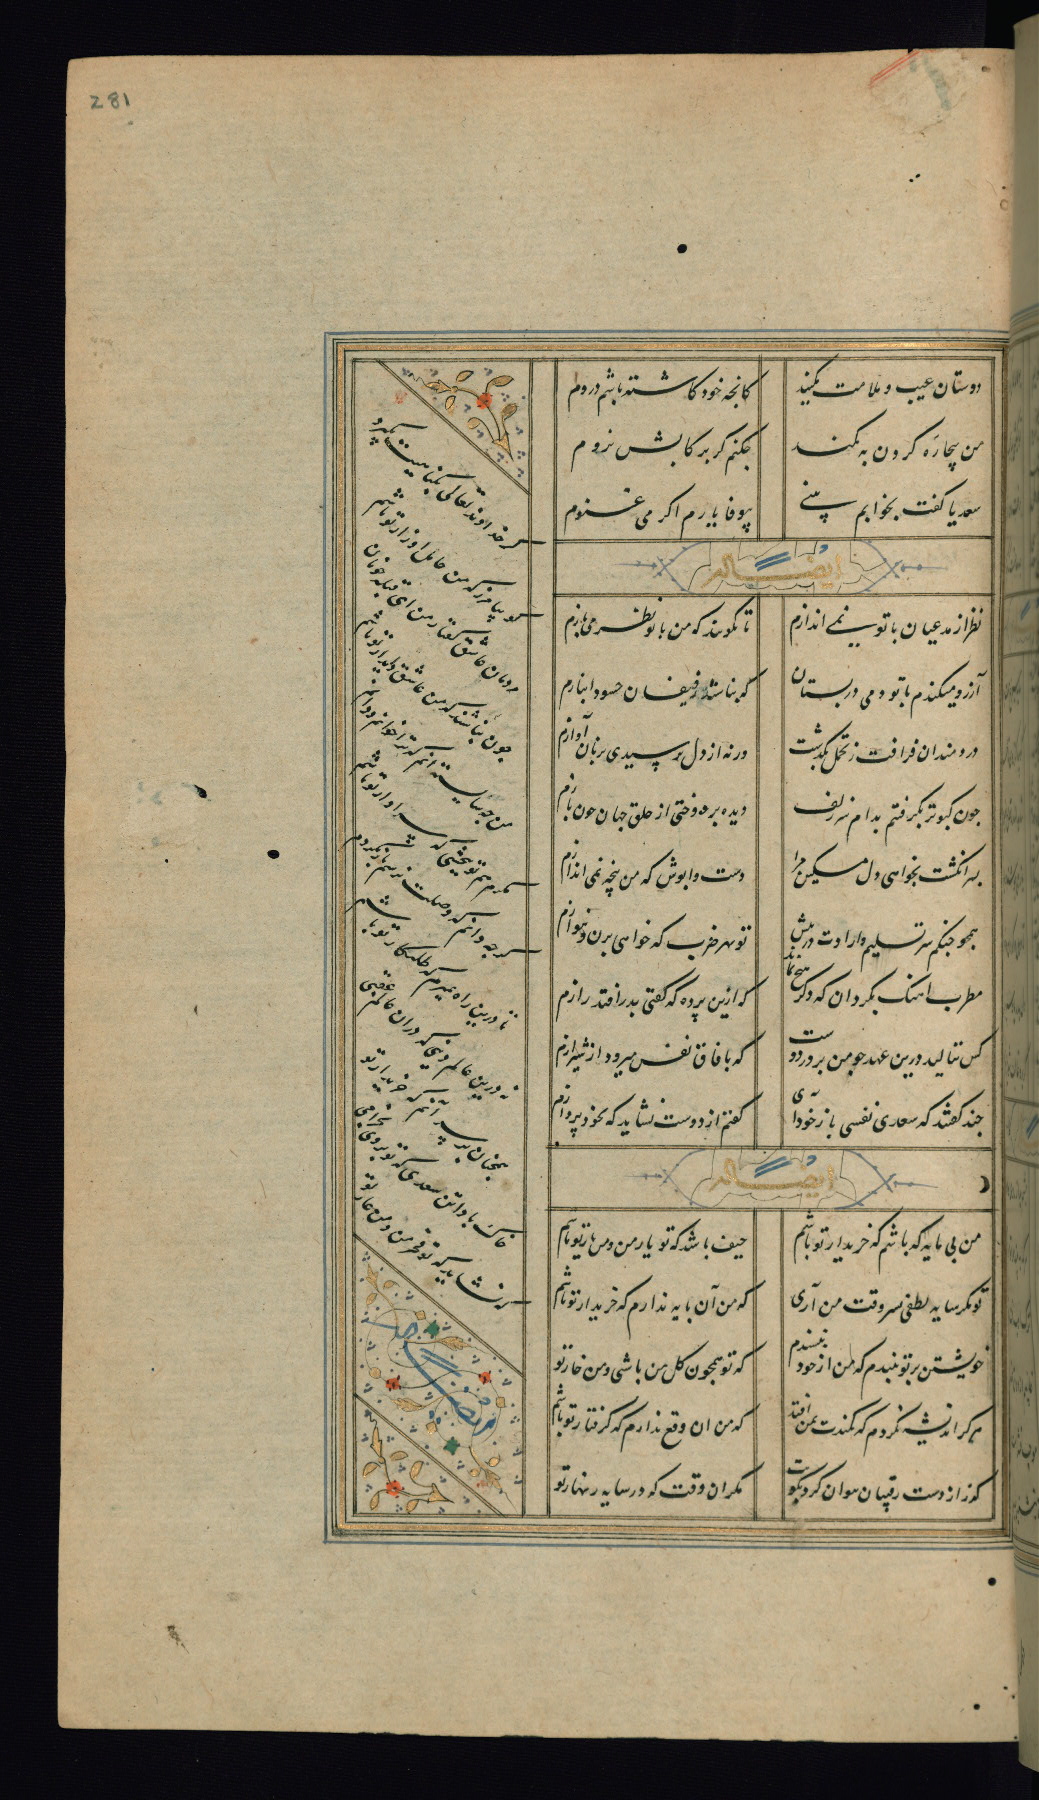 281
دوستان عیب و ملامت مکنید
کانجه خود کاشته باشم دروم
من بیچاره گردن به کمند
جکنم کر برکابش نروم
سعدیا کفت بخوابم بینی
بیوفا یارم اکر می غنوم
ایضاله
نظر از مدعیان با تو نمی اندازم
تا نکویند که من با تو نظر می بازم
آرزو میکندم با تو دمی در بستان
که نباشند رفیقان حسود انبازم
دردمندان فراقت ز تحمل بکذشت
ورنه از دل نرسیدی بزبان آوازم
جون کبوتر بکرفتم بدام سر زلف
دیده بردوختی از خلق جهان جون بازم
بسر انکشت بخواهی دل مسکین مرا
دست وابوش که من پنجه نمی اندازم
همجو جنکم سر تسلیم و ارادت در پیش
تو بهر ضرب که خواهی بزن و بنوازم
مطرب اهنک بکردان که دکر هیج نماند
که ازین پرده که کفتی بدر افتد رازم
کس ننالید درین عهد جو من بر در دوست
که بافاق نفس میرود از شیرازم
جند کفتند که سعدی نفسی باز خود آی
کفتم از دوست نشاید که بخود پردازم
ایضاله
من بی مایه که باشم که خریدار تو باشم
حیف باشد که تو یار من و من یار تو باشم
تو مکر سایه لطفی بسر وقت من آری
که من آن مایه ندارم که خریدار تو باشم
خویشتن بر تو نبندم که من از خود نپسندم
که تو همجون کل من باشی و من خار تو
هرکز اندیشه نکردم که کمندت بمن افتد
که من ان وقع ندارم که کرفتار تو باشم
کذر از دست رقیبان نتوان کرد بکویت
مکر ان وقت که در سایه زنهار تو
کر خداوند تعالی بکناهیت بکیرد
کو بیامرز که من حامل اوزار تو باشم
مردمان عاشق کفتار من ای قبله خوبان
جون نباشند که من عاشق دیدار تو باشم
من جه شایسته انم که ترا خوانم و دانم
مکرم هم تو ببخشی که سزاوار تو باشم
کرجه دانم که بوصلت نرسم باز نکردم
تا درین راه بمیرم که طلبکار تو باشم
نه درین عالم دنیی که در ان عالم عقبی
همجنان بر سر آنم که خریدار تو
خاک بادا تن سعدی که تو بروی نخرامی
که نشاید که تو فخر من و من عار تو
ایضاله